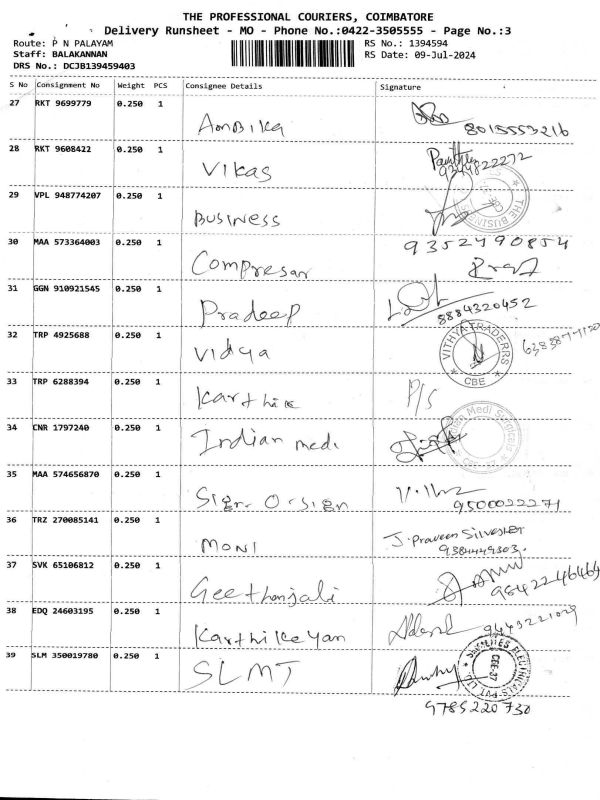 THE PROFESSIONAL COURIERS, COIMBATORE
Delivery Runsheet - MO - Phone No.:0422-3505555 - Page No.:3
Route: P N PALAYAM RS No.: 1394594
Staff: BALAKANNAN RS Date: 09-Jul-2024
DRS No.: DCJB139459403
S No Consignment No Weight PCS Consignee Details Signature
27 RKT 9699779 0.250 1
Ambika 8015553216
28 RKT 9608422 0.250 1
Vikas
29 VPL 948774207 0.250 1
Business
THE BUSINESS
30 MAA 573364003 0.250 1 9352790854
Compresar
31 GGN 910921545 0.250 1
Pradeep 8884320452
32 TRP 4925688 0.250 1
Vidya VITHYA TRADERRS CBE
33 TRP 6288394 0.250 1
Karthik P/S
34 CNR 1797240 0.250 1
Indian medi Indian Medi Surgicals
35 MAA 574656870 0.250 1
Sign-O-sign 9500022271
36 TRZ 270085141 0.250 1
MONI J. Praveen Silvester
9384449303.
37 SVK 65106812 0.250 1
Geethanjali 9842246464
38 EDQ 24603195 0.250 1
Karthikeyan 9443221029
39 SLM 350019780 0.250 1
SLMT
9785220730